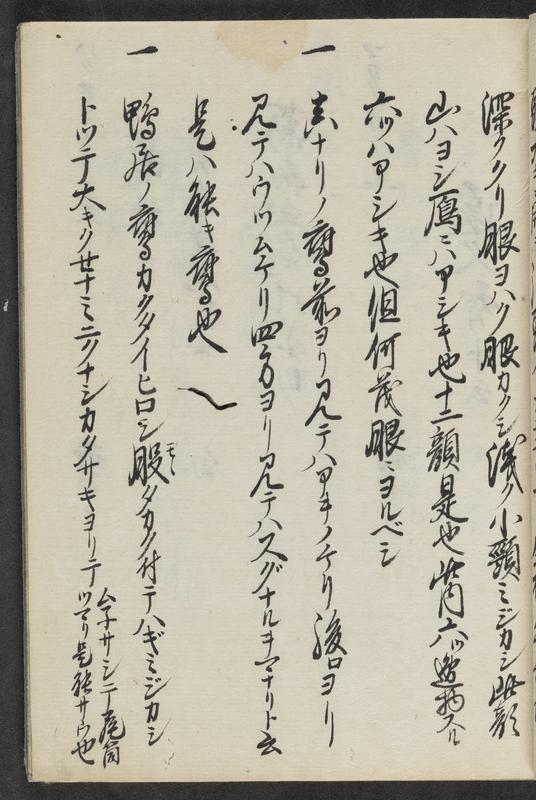 深クタリ眼ヨハク股カタシ浅ク小頸ミジカシ此顔
山ハヨシ鳫ニハアシキ也十二顔是也此内六ツ逸物六
六ツハアシキ也但何茂眼ニヨルベシ
一 真ナリノ鷹前ヨリ見テハアキノケリ後ロヨリ
見テハウツムケリ四方ヨリ見テハスグナルヲマナリト云
是ハ能キ鷹也
一 鴨居ノ鷹カタタイヒロシ股タカク付テハギミジカシ
トツテ大キクせナミニクナシカタサキヨリテ
ムチサシニテ尾筒
ツマリ是能サウ也